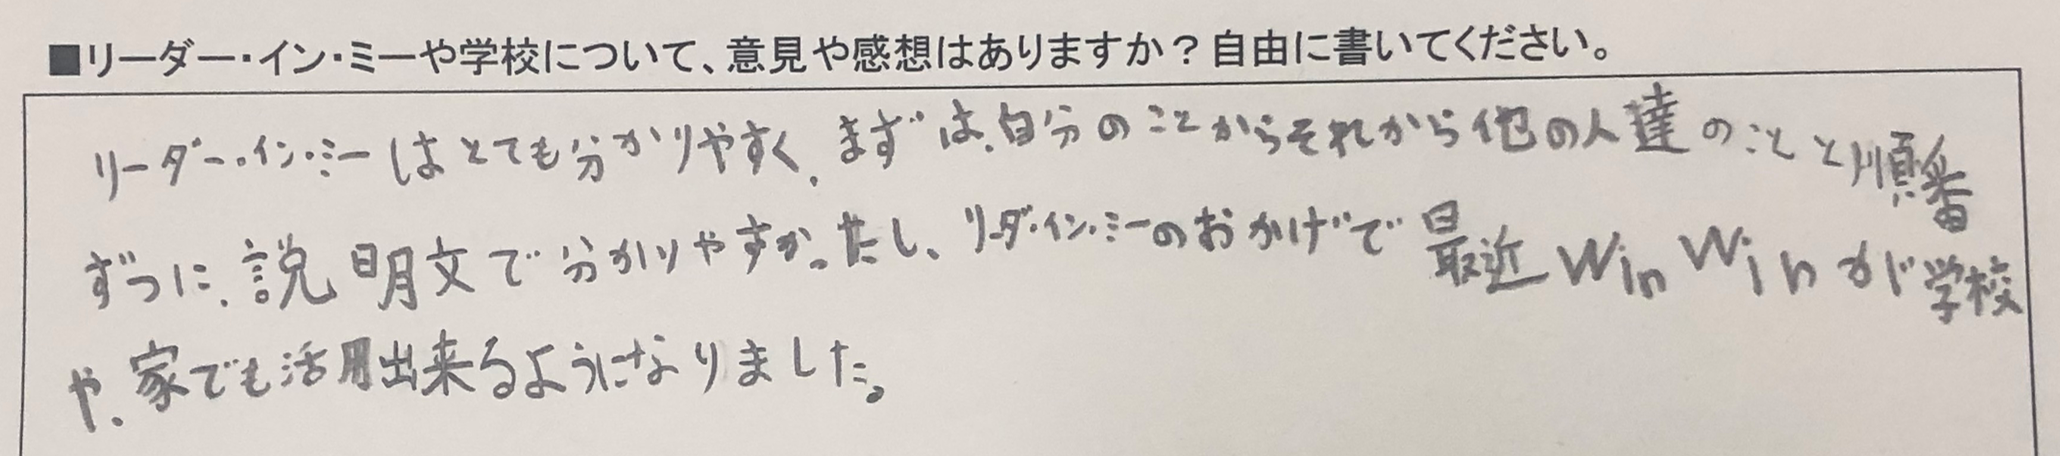 ■リーダー・イン・ミーや学校について、意見や感想はありますか？自由に書いてください。
リーダー・イン・ミーはとても分かりやすく、まずは、自分のことからそれから他の人達のことと順番
ずつに、説明文で分かりやすかったし、リーダ・イン・ミーのおかげで最近WinWinが学校
や、家でも活用出来るようになりました。